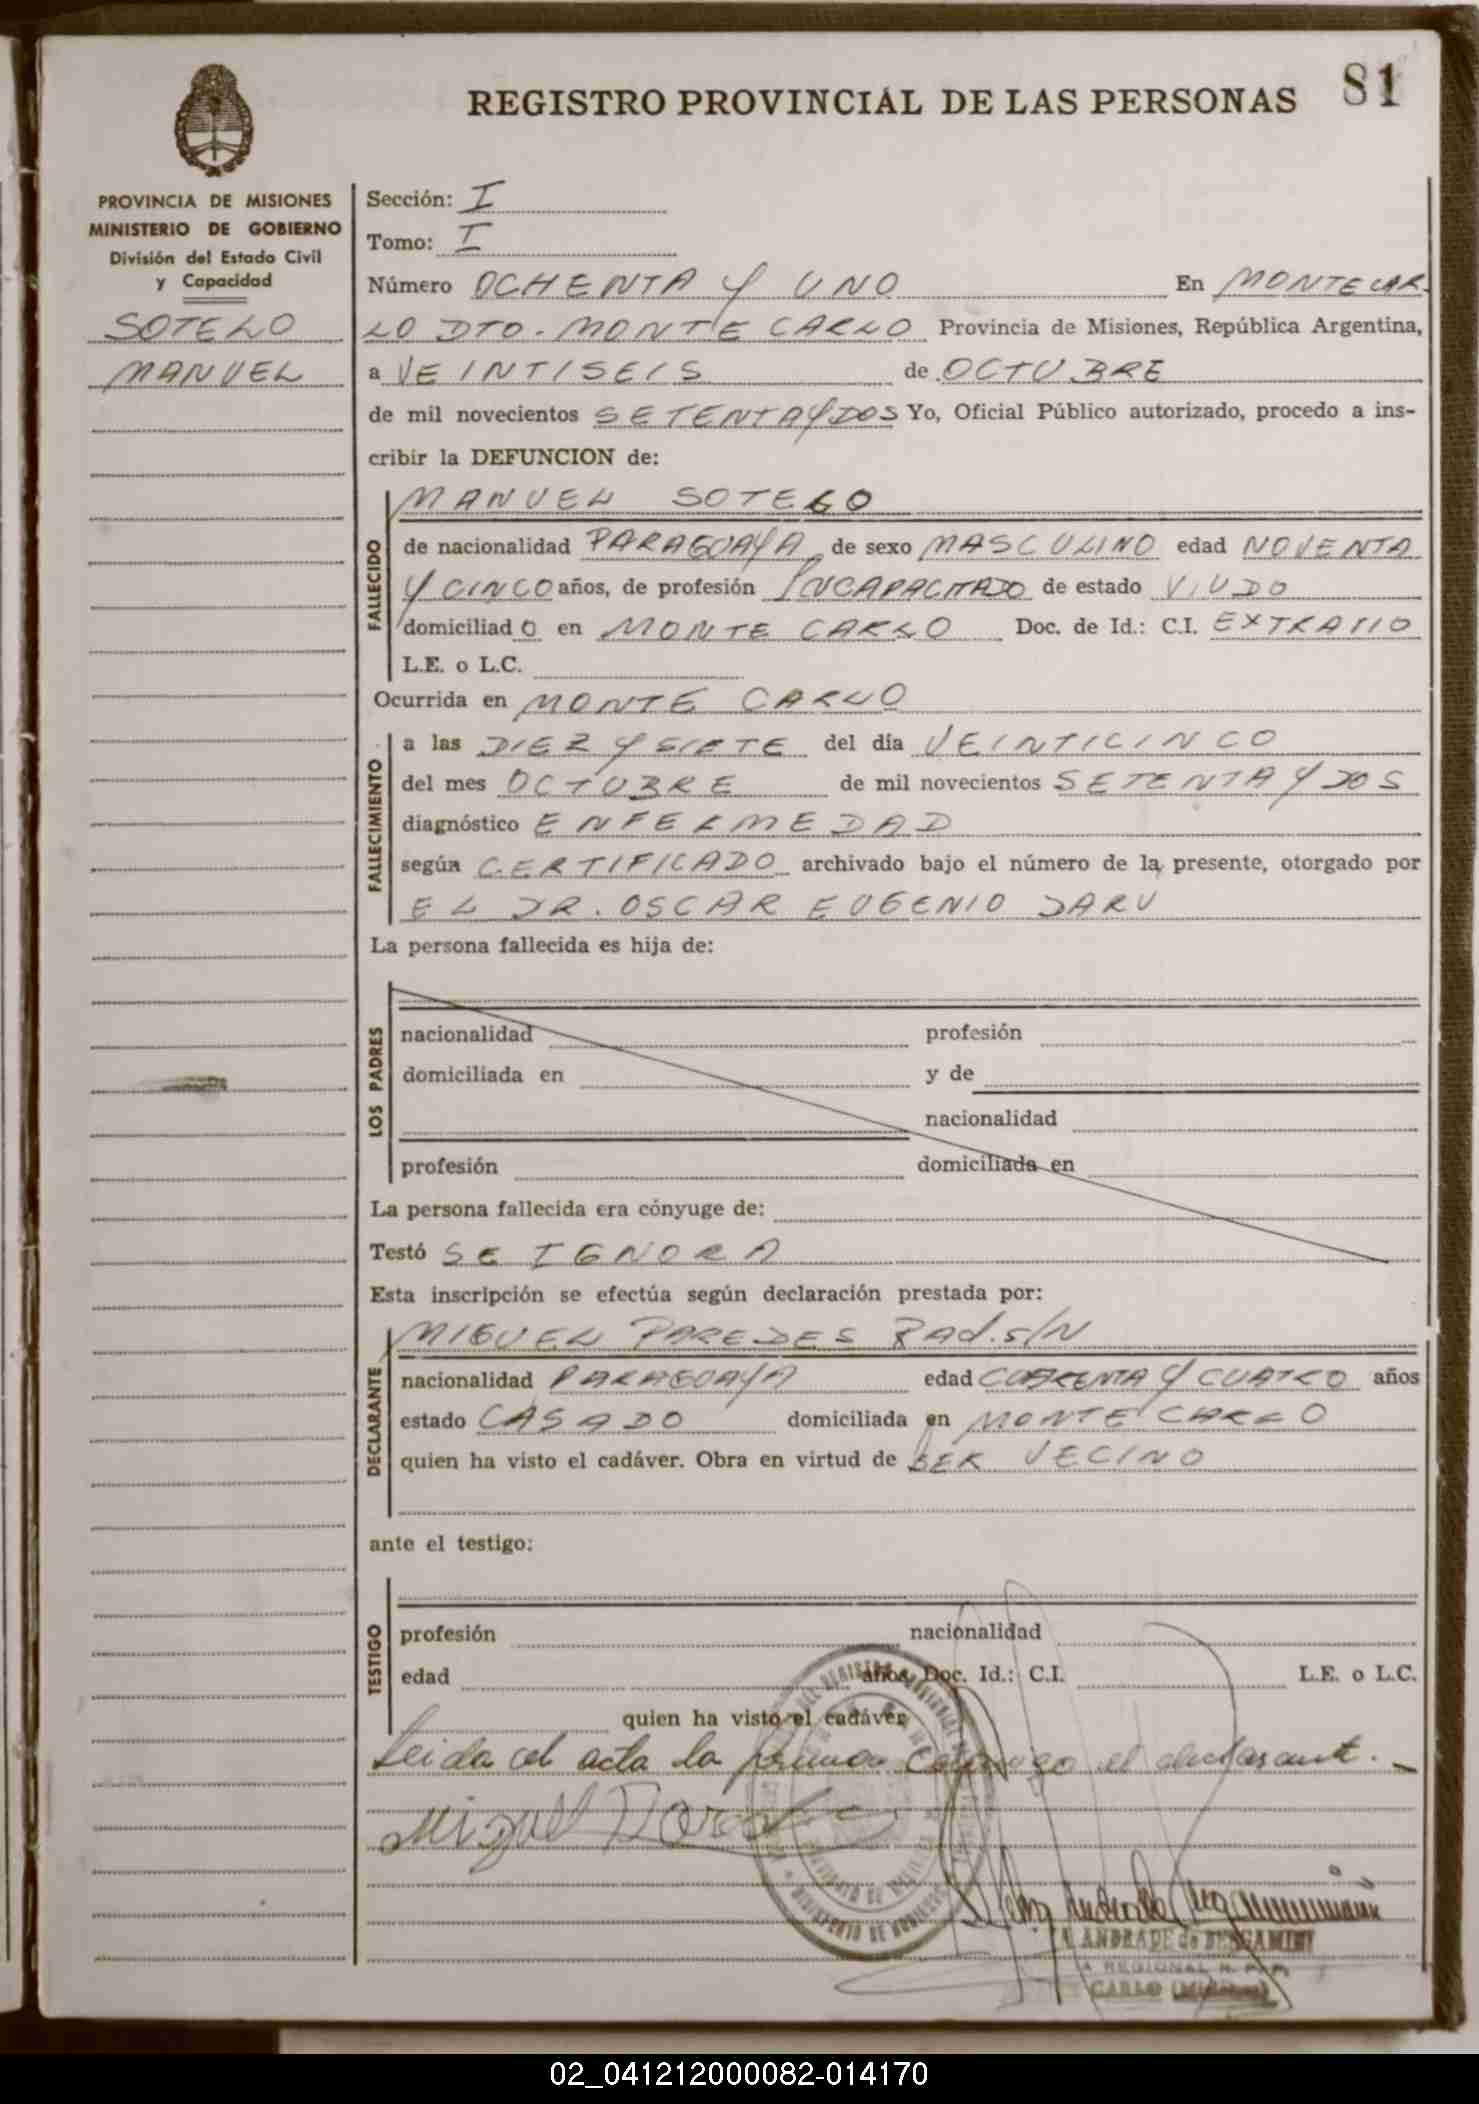 REGISTRO PROVINCIAL DE LAS PERSONAS 81
PROVINCIA DE MISIONES
MINISTERIO DE GOBIERNO
División del Estado Civil
y Capacidad
SOTELO
MANUEL
Sección: I
Tomo: I
Número OCHENTA Y UNO En MONTECAR-
LO DTO. MONTE CARLO Provincia de Misiones, República Argentina,
a VEINTISEIS de OCTUBRE
de mil novecientos SETENTA Y DOS Yo, Oficial Público autorizado, procedo a ins-
cribir la DEFUNCION de:
FALLECIDO
MANUEL SOTELO
de nacionalidad PARAGUAYA de sexo MASCULINO edad NOVENTA
Y CINCO años, de profesión INCAPACITADO de estado VIUDO
domiciliado en MONTE CARLO Doc. de Id.: C.I. EXTRAÑO
L.E. o L.C.
Ocurrida en MONTE CARLO
FALLECIMIENTO
a las DIEZ Y SIETE del día VEINTICINCO
del mes OCTUBRE de mil novecientos SETENTA Y DOS
diagnóstico ENFERMEDAD
según CERTIFICADO archivado bajo el número de la presente, otorgado por
EL DR. OSCAR EUGENIO DARU
La persona fallecida es hija de:
LOS PADRES
nacionalidad profesión
domiciliada en y de
nacionalidad
profesión domiciliada en
La persona fallecida era cónyuge de:
Testó SE IGNORA
Esta inscripción se efectúa según declaración prestada por:
DECLARANTE
MIGUEL PAREDES Rad. s/N
nacionalidad PARAGUAYA edad CUARENTA Y CUATRO años
estado CASADO domiciliada en MONTE CARLO
quien ha visto el cadáver. Obra en virtud de SER VECINO
ante el testigo:
TESTIGO
profesión nacionalidad
edad años, Doc. Id.: C.I. L.E. o L.C.
quien ha visto el cadáver
Leida el acta la firma conmigo el declarante.
Miguel
ANDRADE de BERGAMINI
REGIONAL R. P. P.
CARLO (Misiones)
02_041212000082-014170